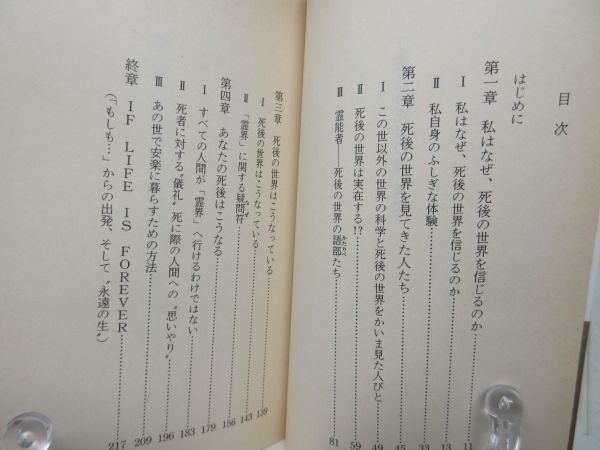 目次
はじめに
第一章 私はなぜ、死後の世界を信じるのか……11
Ⅰ 私はなぜ、死後の世界を信じるのか……13
Ⅱ 私自身のふしぎな体験……33
第二章 死後の世界を見てきた人たち……45
Ⅰ この世以外の世界の科学と死後の世界をかいま見た人びと……49
Ⅱ 死後の世界は実在する!?……59
Ⅲ 霊能者——死後の世界の語部たち……81
第三章 死後の世界はこうなっている……139
Ⅰ 死後の世界はこうなっている……143
Ⅱ 「霊界」に関する疑問符……156
第四章 あなたの死後はこうなる……179
Ⅰ すべての人間が「霊界」へ行けるわけではない……183
Ⅱ 死者に対する〝儀礼〟死に際の人間への〝思いやり〟……196
Ⅲ あの世で安楽に暮らすための方法……209
終章 IF LIFE IS FOREVER……217
(「もしも…」からの出発、そして〝永遠の生〟)